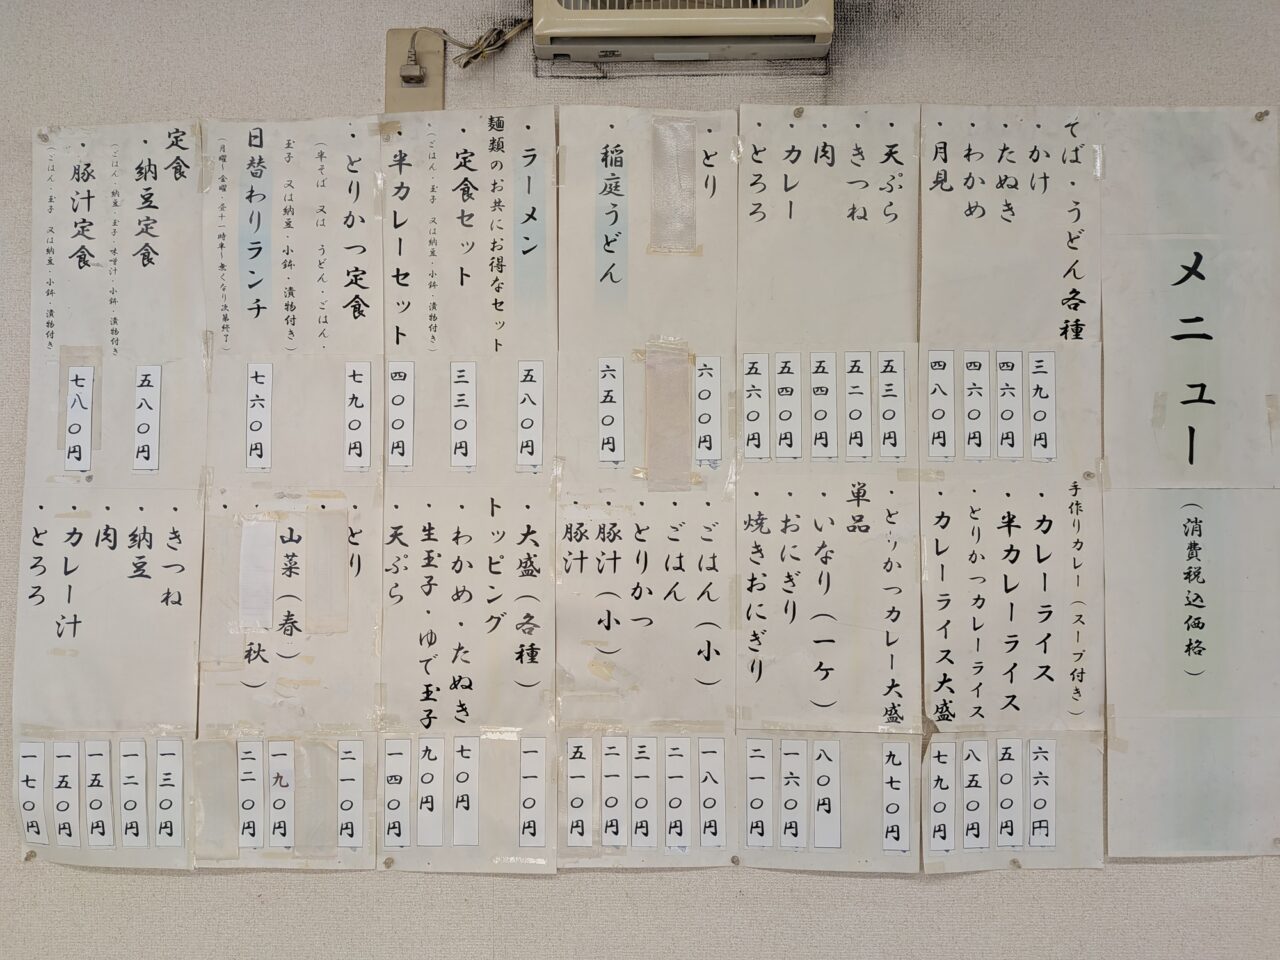 メニュー
(消費税込価格)
そば・うどん各種
・かけ 三九〇円
・たぬき 四六〇円
・わかめ 四六〇円
・月見 四八〇円
・天ぷら 五三〇円
・きつね 五二〇円
・肉 五四〇円
・カレー 五四〇円
・とろろ 五六〇円
・とり 六〇〇円
稲庭うどん 六五〇円
・ラーメン 五八〇円
麺類のお共にお得なセット
・定食セット 三三〇円
(ごはん・玉子 又は納豆・小鉢・漬物付き)
・半カレーセット 四〇〇円
・とりかつ定食 七九〇円
(半そば 又は うどん・ごはん・
玉子 又は納豆・小鉢・漬物付き)
日替わりランチ 七六〇円
(月曜〜金曜・昼十一時半〜無くなり次第終了)
定食
・納豆定食 五八〇円
(ごはん・納豆・玉子・味噌汁・小鉢・漬物付き)
・豚汁定食 七八〇円
(ごはん・玉子 又は納豆・小鉢・漬物付き)
手作りカレー(スープ付き)
・カレーライス 六六〇円
・半カレーライス 五〇〇円
・とりかつカレーライス 八五〇円
・カレーライス大盛 七九〇円
・とりかつカレー大盛 九七〇円
単品
・いなり(一ケ) 八〇円
・おにぎり 一六〇円
・焼きおにぎり 二一〇円
・ごはん(小) 一八〇円
・ごはん 二一〇円
・とりかつ 三一〇円
・豚汁(小) 二一〇円
・豚汁 五一〇円
・大盛(各種) 一一〇円
トッピング
・わかめ・たぬき 七〇円
・生玉子・ゆで玉子 九〇円
・天ぷら 一四〇円
・とり 二一〇円
・山菜(春) 一九〇円
・秋) 二二〇円
・きつね 一三〇円
・納豆 一二〇円
・肉 一五〇円
・カレー汁 一五〇円
・とろろ 一七〇円